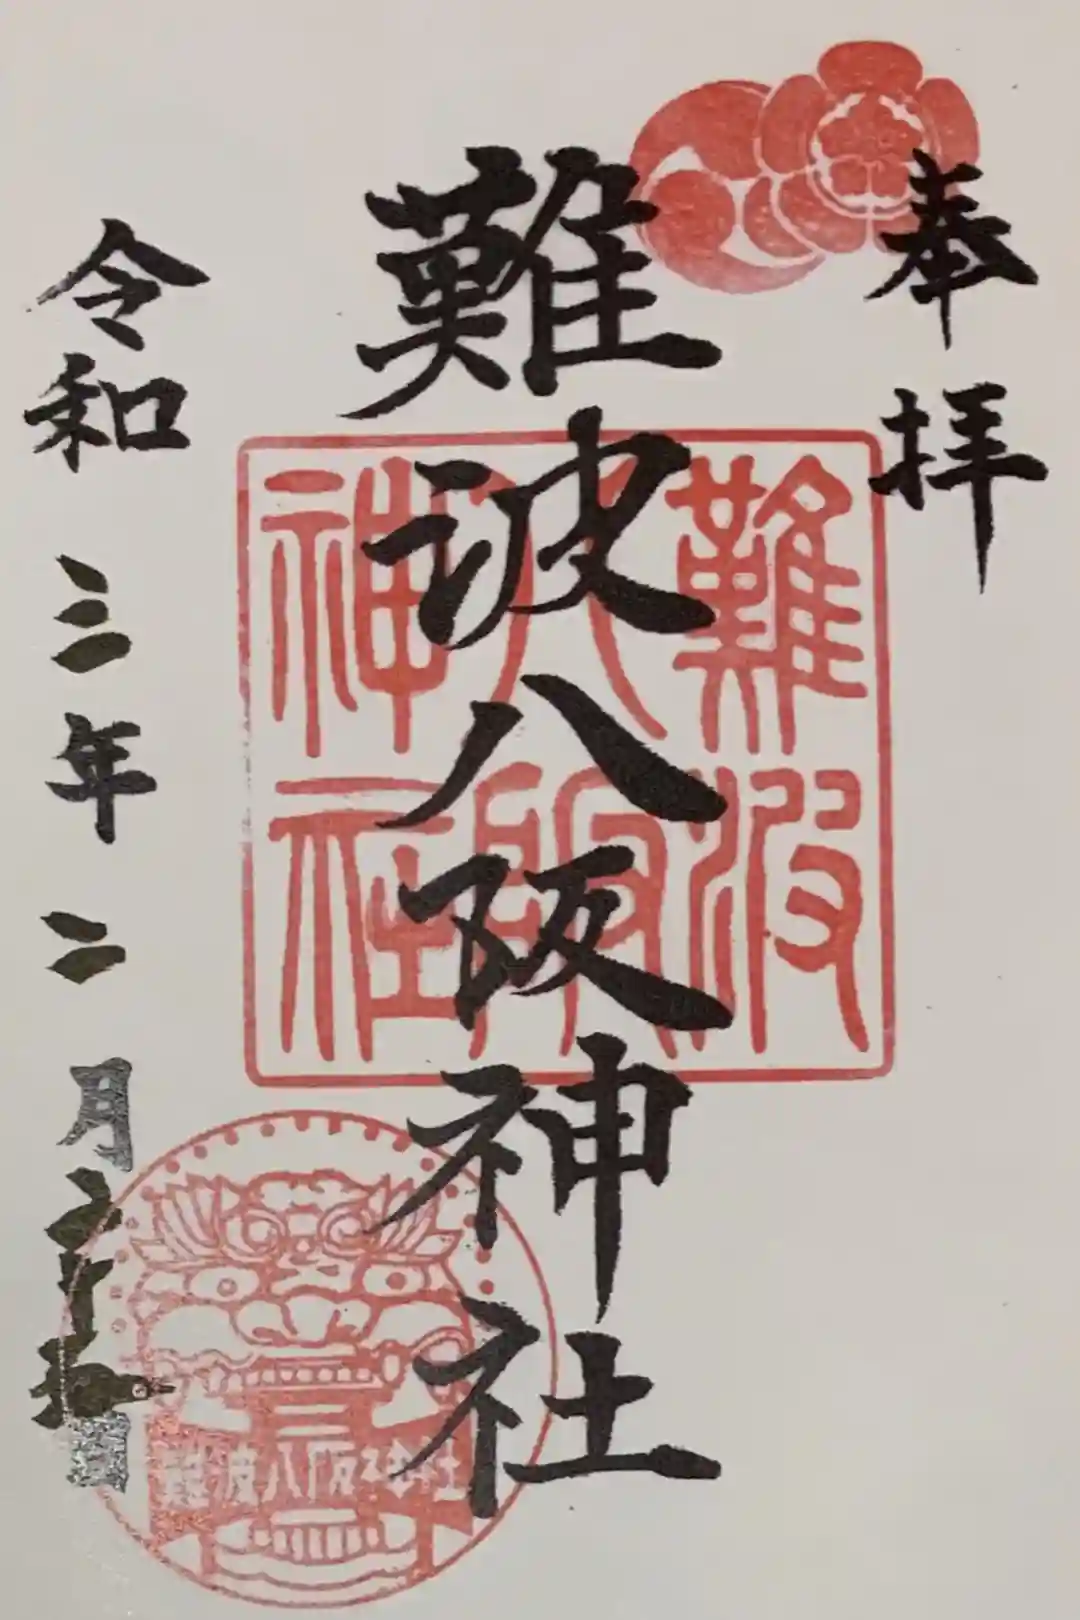 奉拝
難波八阪神社
難波
八阪
神社
令和三年二月
難波八阪神社